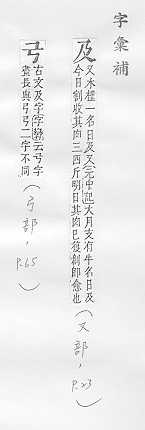 字彙補
及
又木槿一名日及又元中記大月支有牛名日及
今日割收其肉三四斤明日其肉已復創即愈也
(又部,P.23)
弓
古文及字字彙云弓字
畫長與弓弓二字不同
(弓部,P.65)